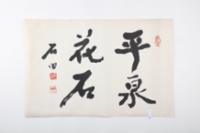 平泉
花石
石田